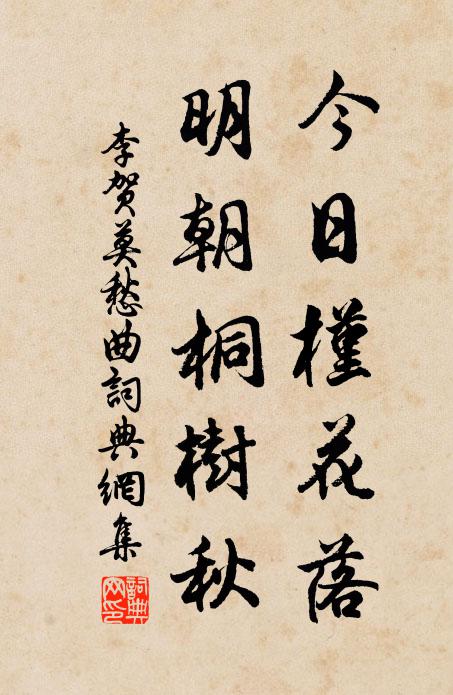 今日槿花落
明朝桐樹秋
李賀莫愁曲詞典網集
詞典網印